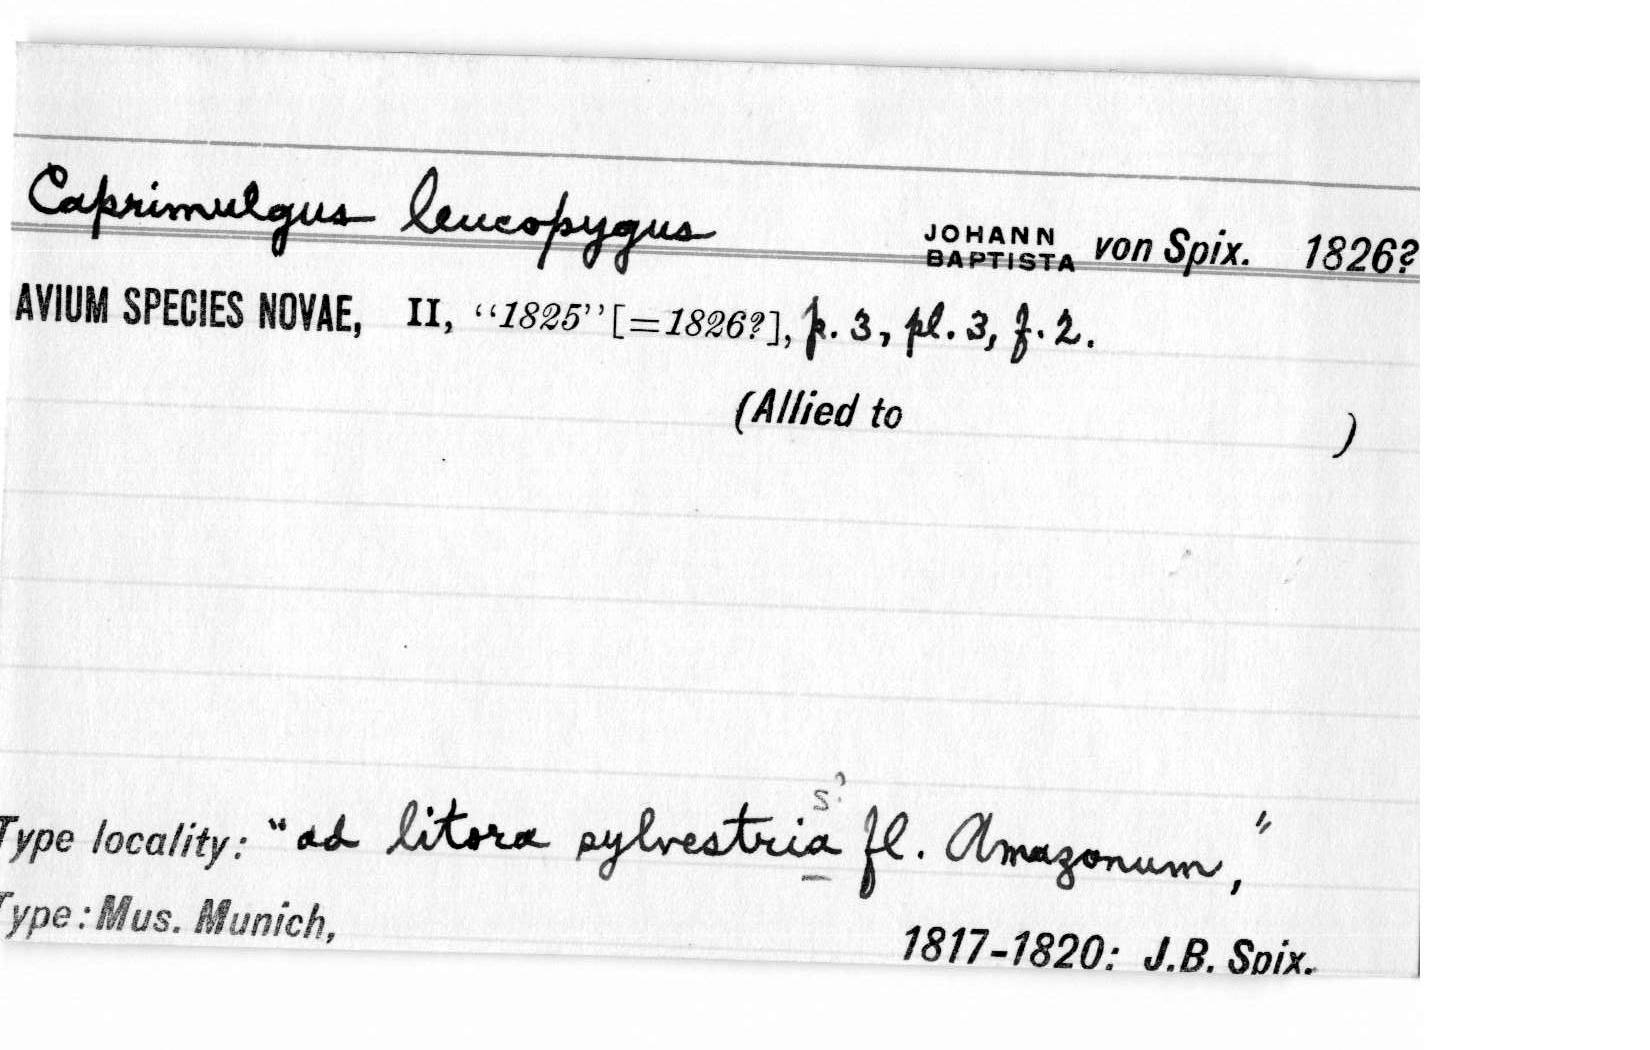 Caprimulgus leucopygus JOHANN BAPTISTA von Spix. 1826?
AVIUM SPECIES NOVAE, II, "1825" [=1826?], p. 3, pl. 3, f. 2.
(Allied to )
s?
Type locality: "ad litora sylvestria fl. Amazonum,"
Type: Mus. Munich,
1817-1820: J.B. Spix.